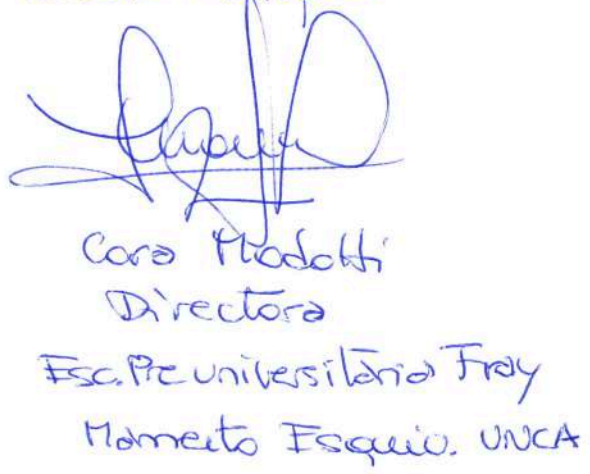 Cora Miodotti
Directora
Esc. Preuniversitaria Fray
Mamerto Esquiu. UNCA